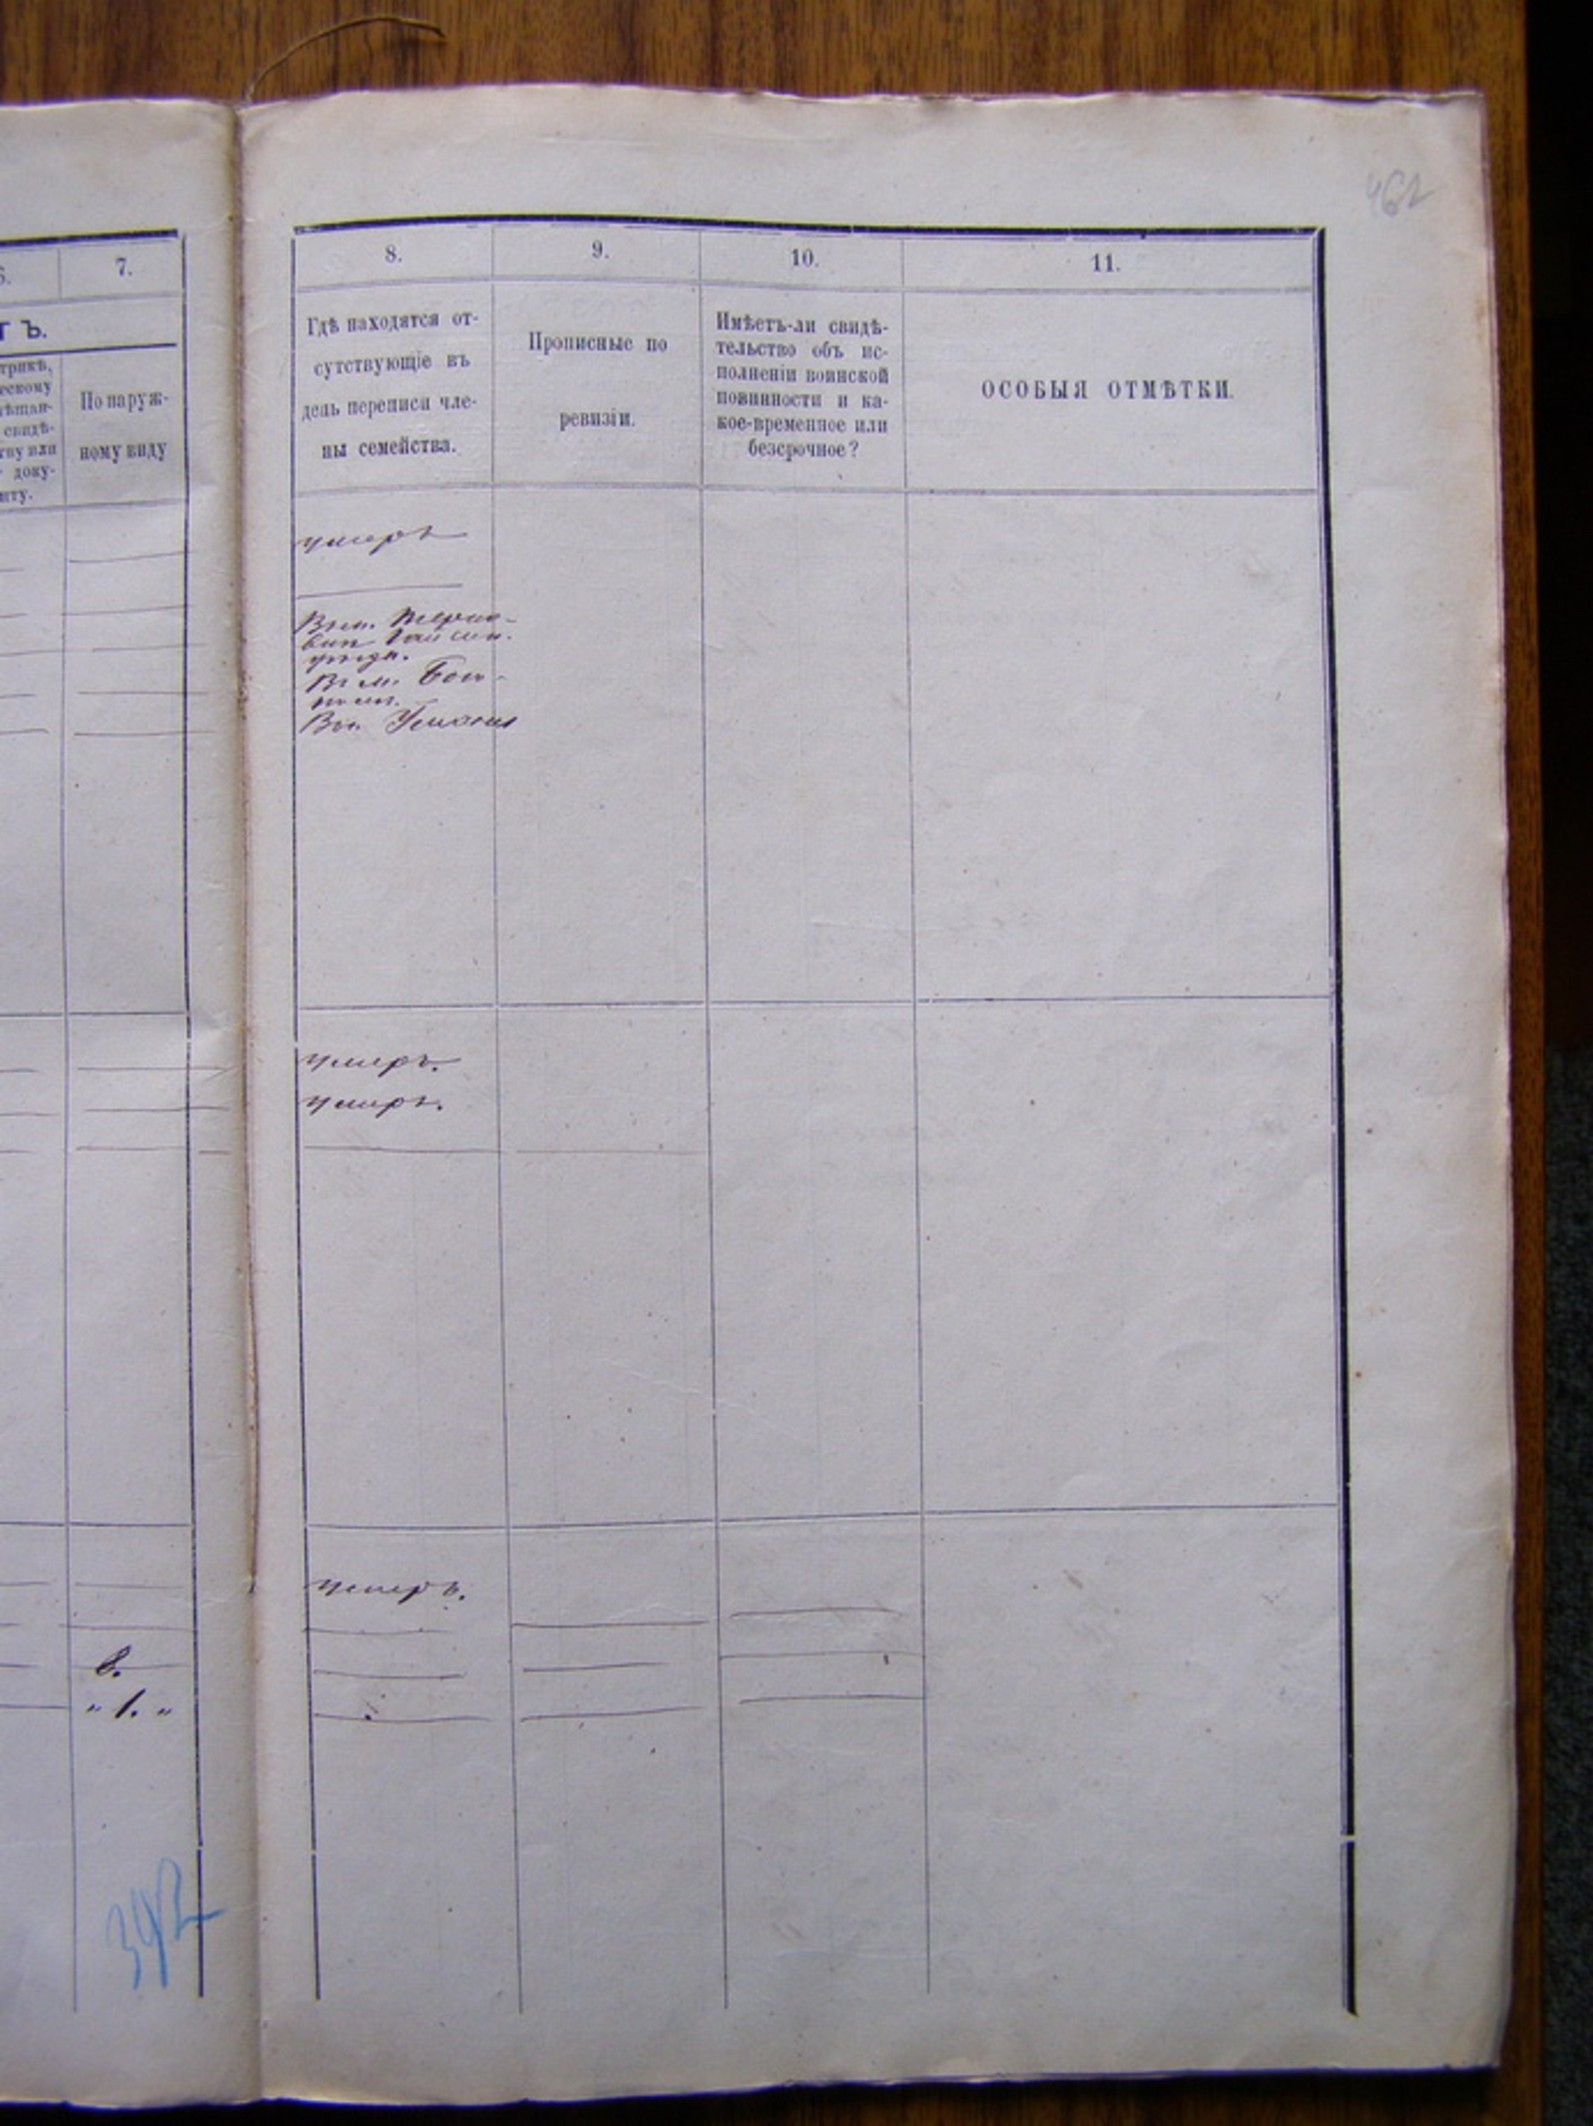 462
6.
7.
8.
9.
10.
11.
ТЪ.
трикѣ,
ческому
свидѣ-
ству или
доку-
нту.
По наруж-
ному виду
Гдѣ находятся от-
сутствующіе въ
день переписи чле-
ны семейства.
Прописные по
ревизіи.
Имѣетъ-ли свидѣ-
тельство объ ис-
полненіи воинской
повинности и ка-
кое-временное или
безсрочное?
ОСОБЫЯ ОТМѢТКИ.
умеръ
уѣзда.
умеръ.
умеръ.
умеръ.
8.
„ 1. „